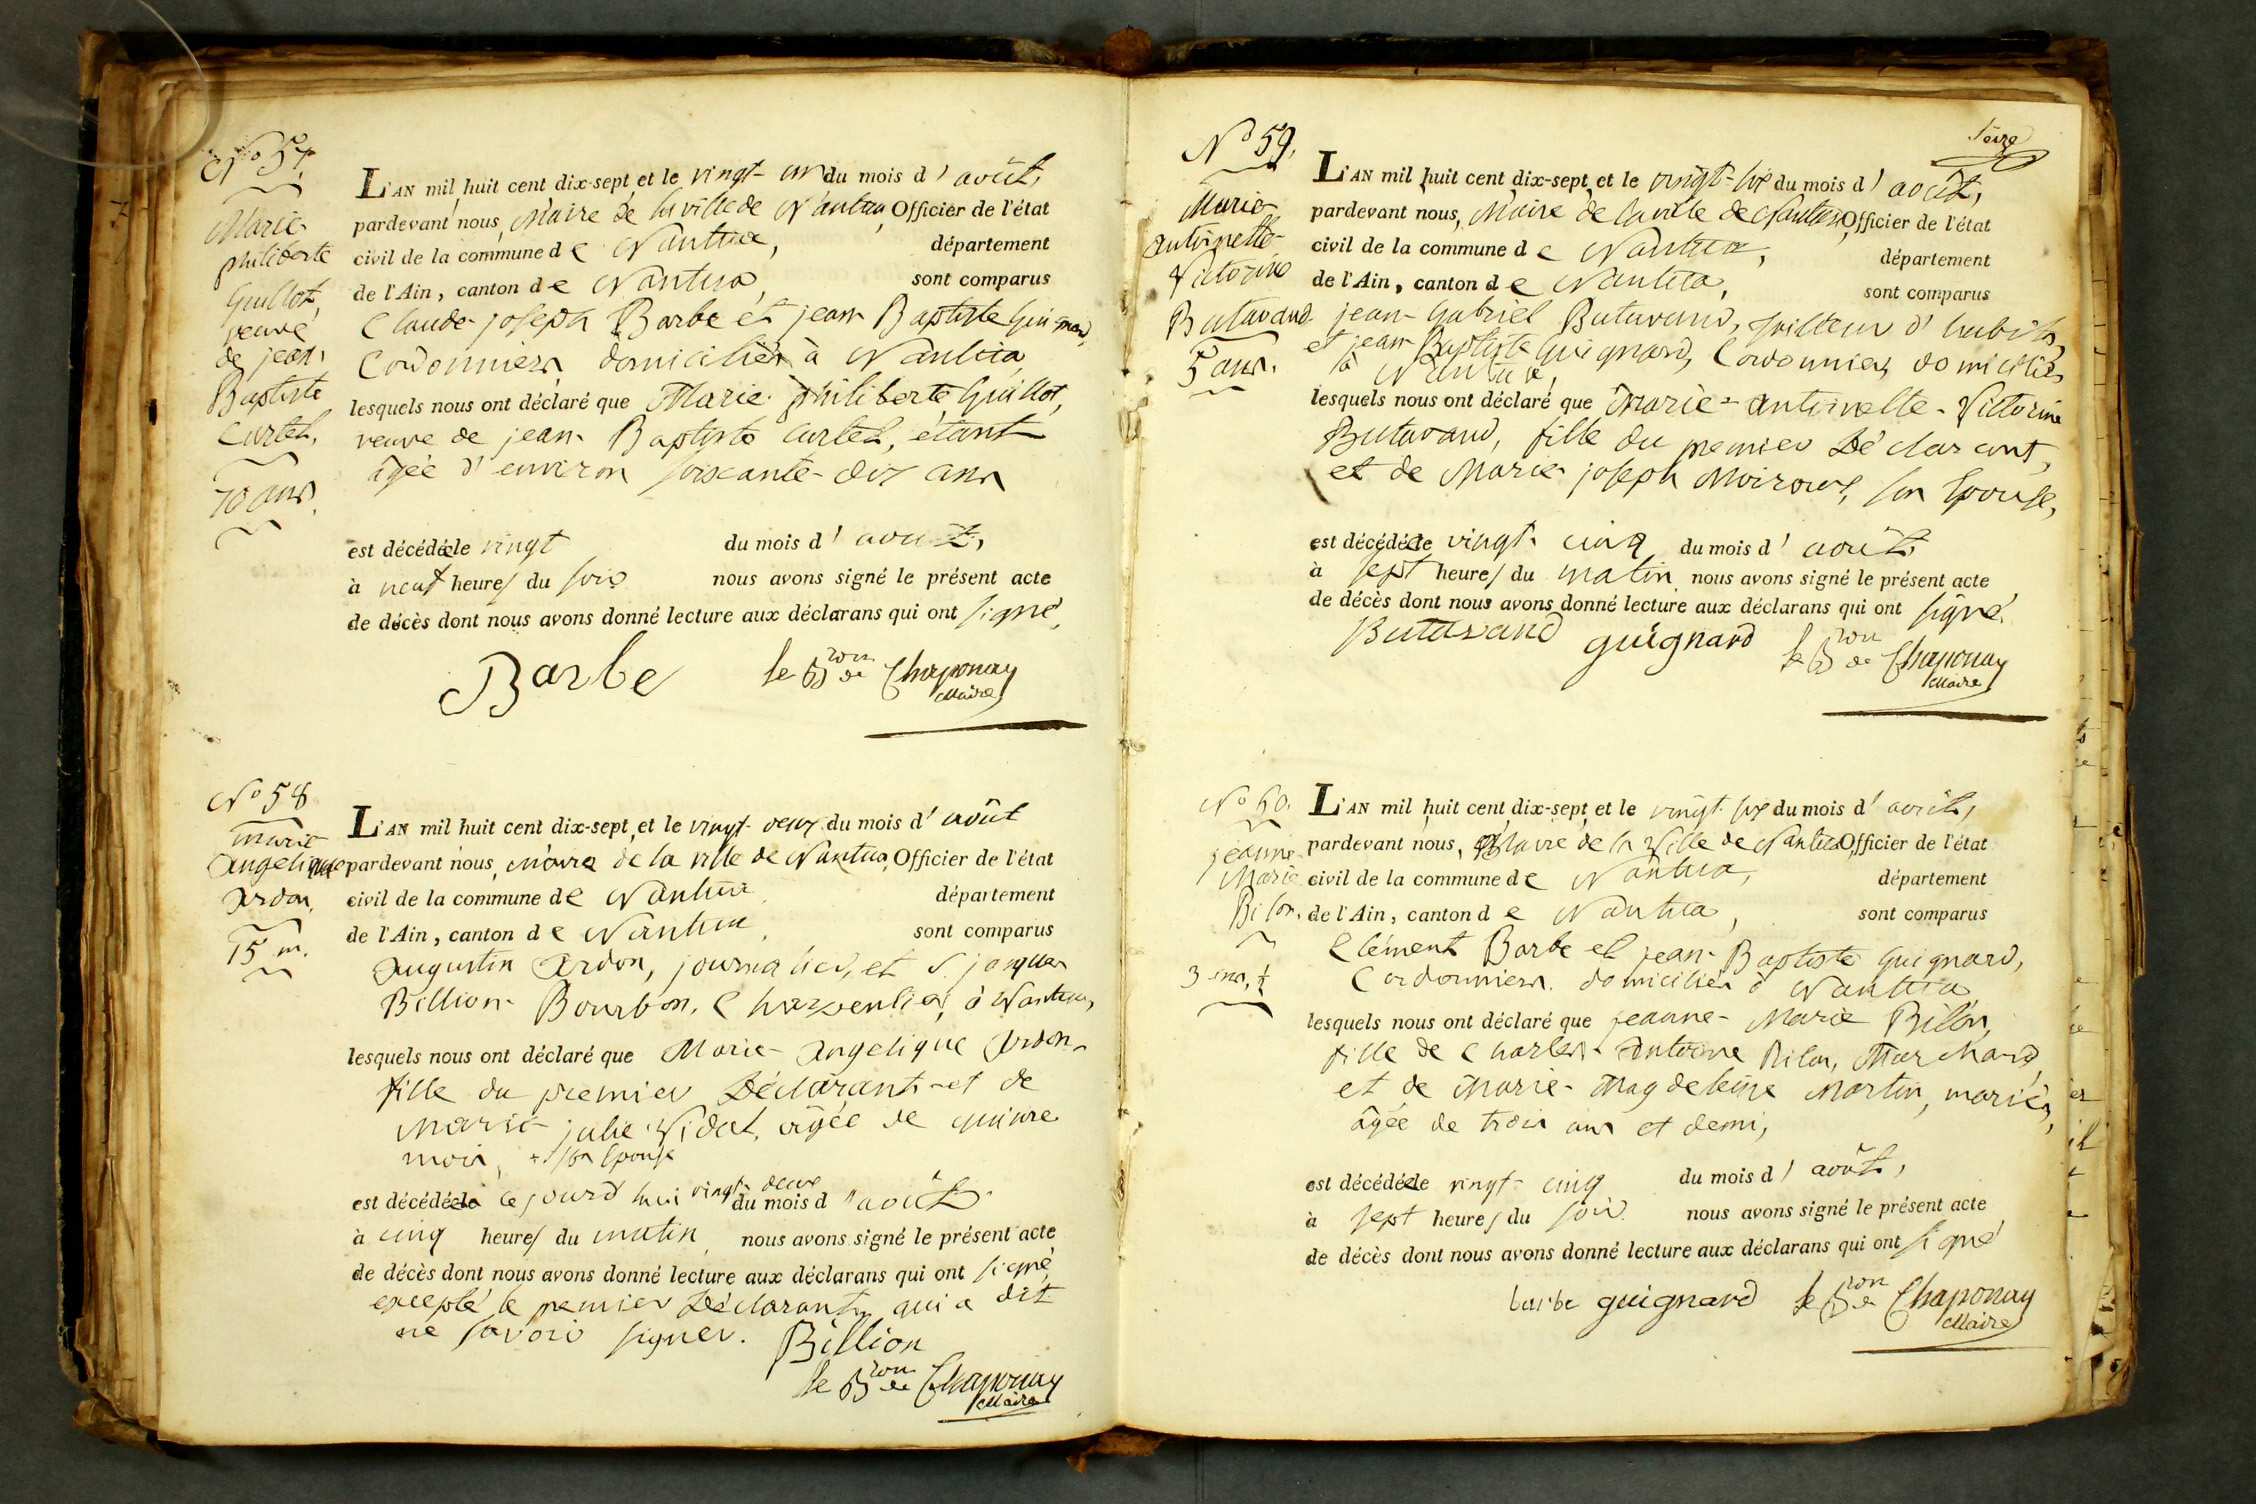 N° 57.
Marie
philiberte
Guillot,
veuve
de jean
Baptiste
Curtet.
70 ans.
L'AN mil huit cent dix-sept et le vingt-un du mois d'août,
pardevant nous, Maire de la ville de Nantua, Officier de l'état
civil de la commune de Nantua, département
de l'Ain, canton de Nantua, sont comparus
Claude joseph Barbe et jean Baptiste
Cordonniers domiciliés à Nantua
lesquels nous ont déclaré que Marie philiberte Guillot,
veuve de jean Baptiste Curtet, étant
âgée d'environ soixante-dix ans
est décédée le vingt du mois d'août,
à neuf heures du soir nous avons signé le présent acte
de décès dont nous avons donné lecture aux déclarans qui ont signé.
Barbe le Bron de Chaponay
Maire
N° 58
marie
angelique
ardon.
15 m.
L'AN mil huit cent dix-sept et le vingt-deux du mois d'août
pardevant nous, maire de la ville de Nantua, Officier de l'état
civil de la commune de Nantua département
de l'Ain, canton de Nantua, sont comparus
augustin ardon, journalier, et jacques
Billion Bourbon, Charpentier, à Nantua,
lesquels nous ont déclaré que Marie angelique ardon
fille du premier Déclarant et de
marie julie Vidal, âgée de quinze
mois, + son épouse
est décédée ce jourd'hui vingt-deux du mois d'août
à cinq heures du matin nous avons signé le présent acte
de décès dont nous avons donné lecture aux déclarans qui ont signé,
excepté le premier Déclarant, qui a dit
ne savoir signer. Billion
le Bron de Chaponay
Maire
N° 59.
Marie
antoinette
Victorine
Butavand
5 ans.
L'AN mil huit cent dix-sept et le vingt-six du mois d'août,
pardevant nous, Maire de la ville de Nantua, Officier de l'état
civil de la commune de Nantua, département
de l'Ain, canton de Nantua, sont comparus
jean Gabriel Butavand, tailleur d'habits,
et jean Baptiste Guignard, Cordonnier, domiciliés
à Nantua,
lesquels nous ont déclaré que marie-antoinette-Victorine
Butavand, fille du premier Déclarant,
et de Marie joseph Moiroux, son Epouse,
est décédée le vingt-cinq du mois d'août
à sept heures du matin nous avons signé le présent acte
de décès dont nous avons donné lecture aux déclarans qui ont signé.
Butavand guignard le Bron de Chaponay
Maire
N° 60.
jeanne
Marie
Bilon.
3 ans, ½
L'AN mil huit cent dix-sept et le vingt-six du mois d'août,
pardevant nous, Maire de la Ville de Nantua, Officier de l'état
civil de la commune de Nantua, département
de l'Ain, canton de Nantua, sont comparus
Clément Barbe et jean Baptiste Guignard,
Cordonniers domiciliés à Nantua
lesquels nous ont déclaré que jeanne-Marie Bilon,
fille de Charles-antoine Bilon, Marchand,
et de Marie-Magdeleine Martin, mariés,
âgée de trois ans et demi,
est décédée le vingt-cinq du mois d'août,
à sept heures du soir nous avons signé le présent acte
de décès dont nous avons donné lecture aux déclarans qui ont signé
barbe guignard le Bron de Chaponay
Maire